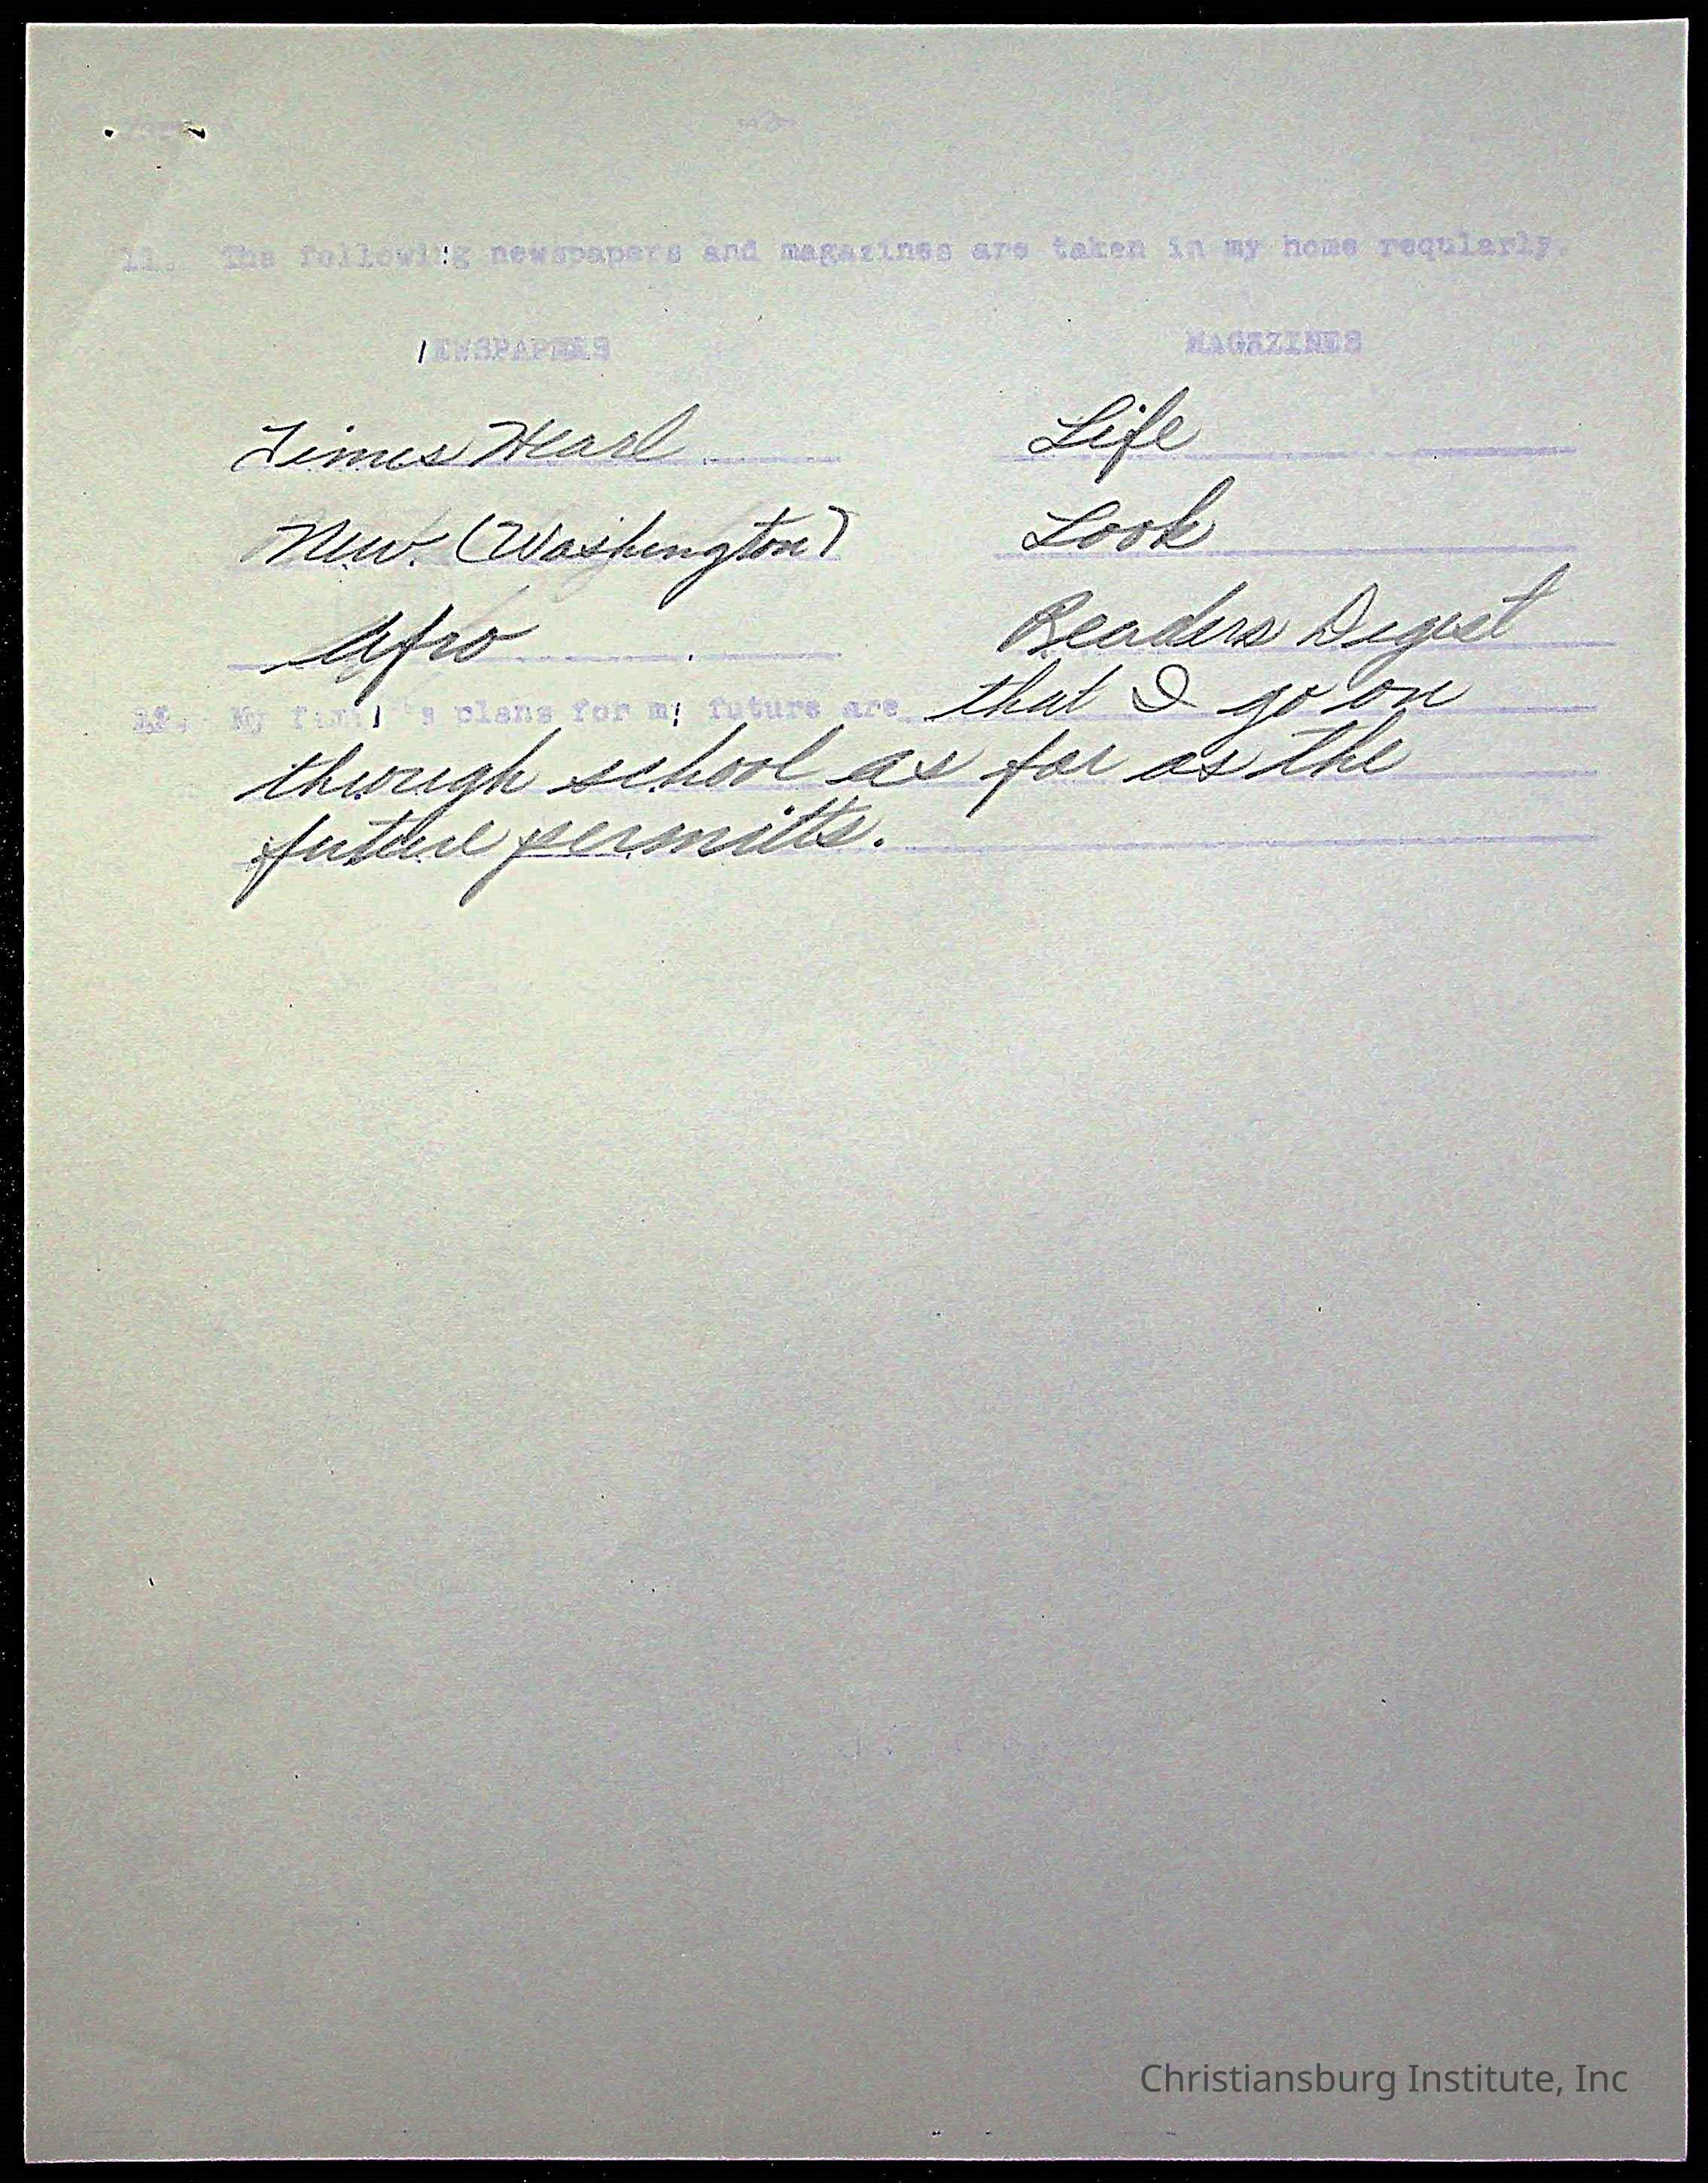 11. The following newspapers and magazines are taken in my home reqularly.
NEWSPAPERS MAGEZINES
Times Life
New. (Washington) Look
Afro Readers Digest
12. My family's plans for my future are that I go on
through school as far as the
future permitts.
Christiansburg Institute, Inc